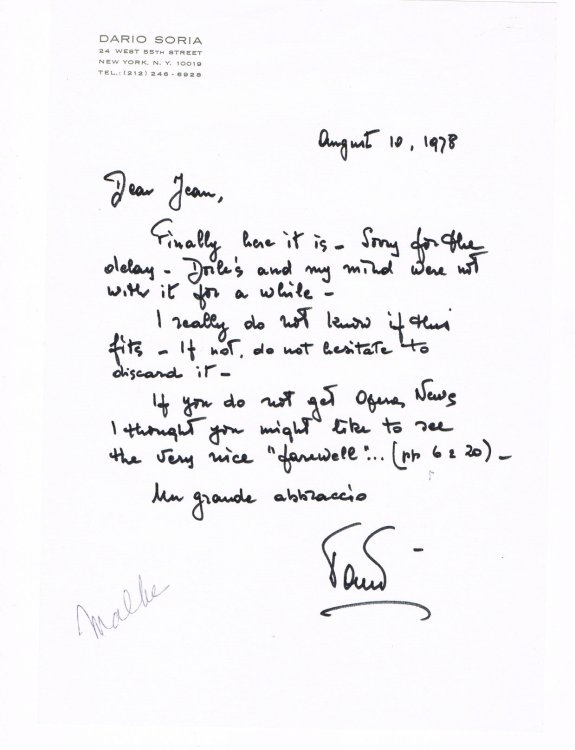 DARIO SORIA
24 WEST 55TH STREET
NEW YORK, N. Y. 10019
TEL.: (212) 246-6928
August 10, 1978
Dear Jean,
Finally here it is - Sorry for the
delay - Dorle's and my mind were not
with it for a while -
I really do not know if this
fits - If not, do not hesitate to
discard it -
If you do not get Opera News
I thought you might like to see
the very nice "farewell"... (pp 6 & 20) -
Un grande abbraccio